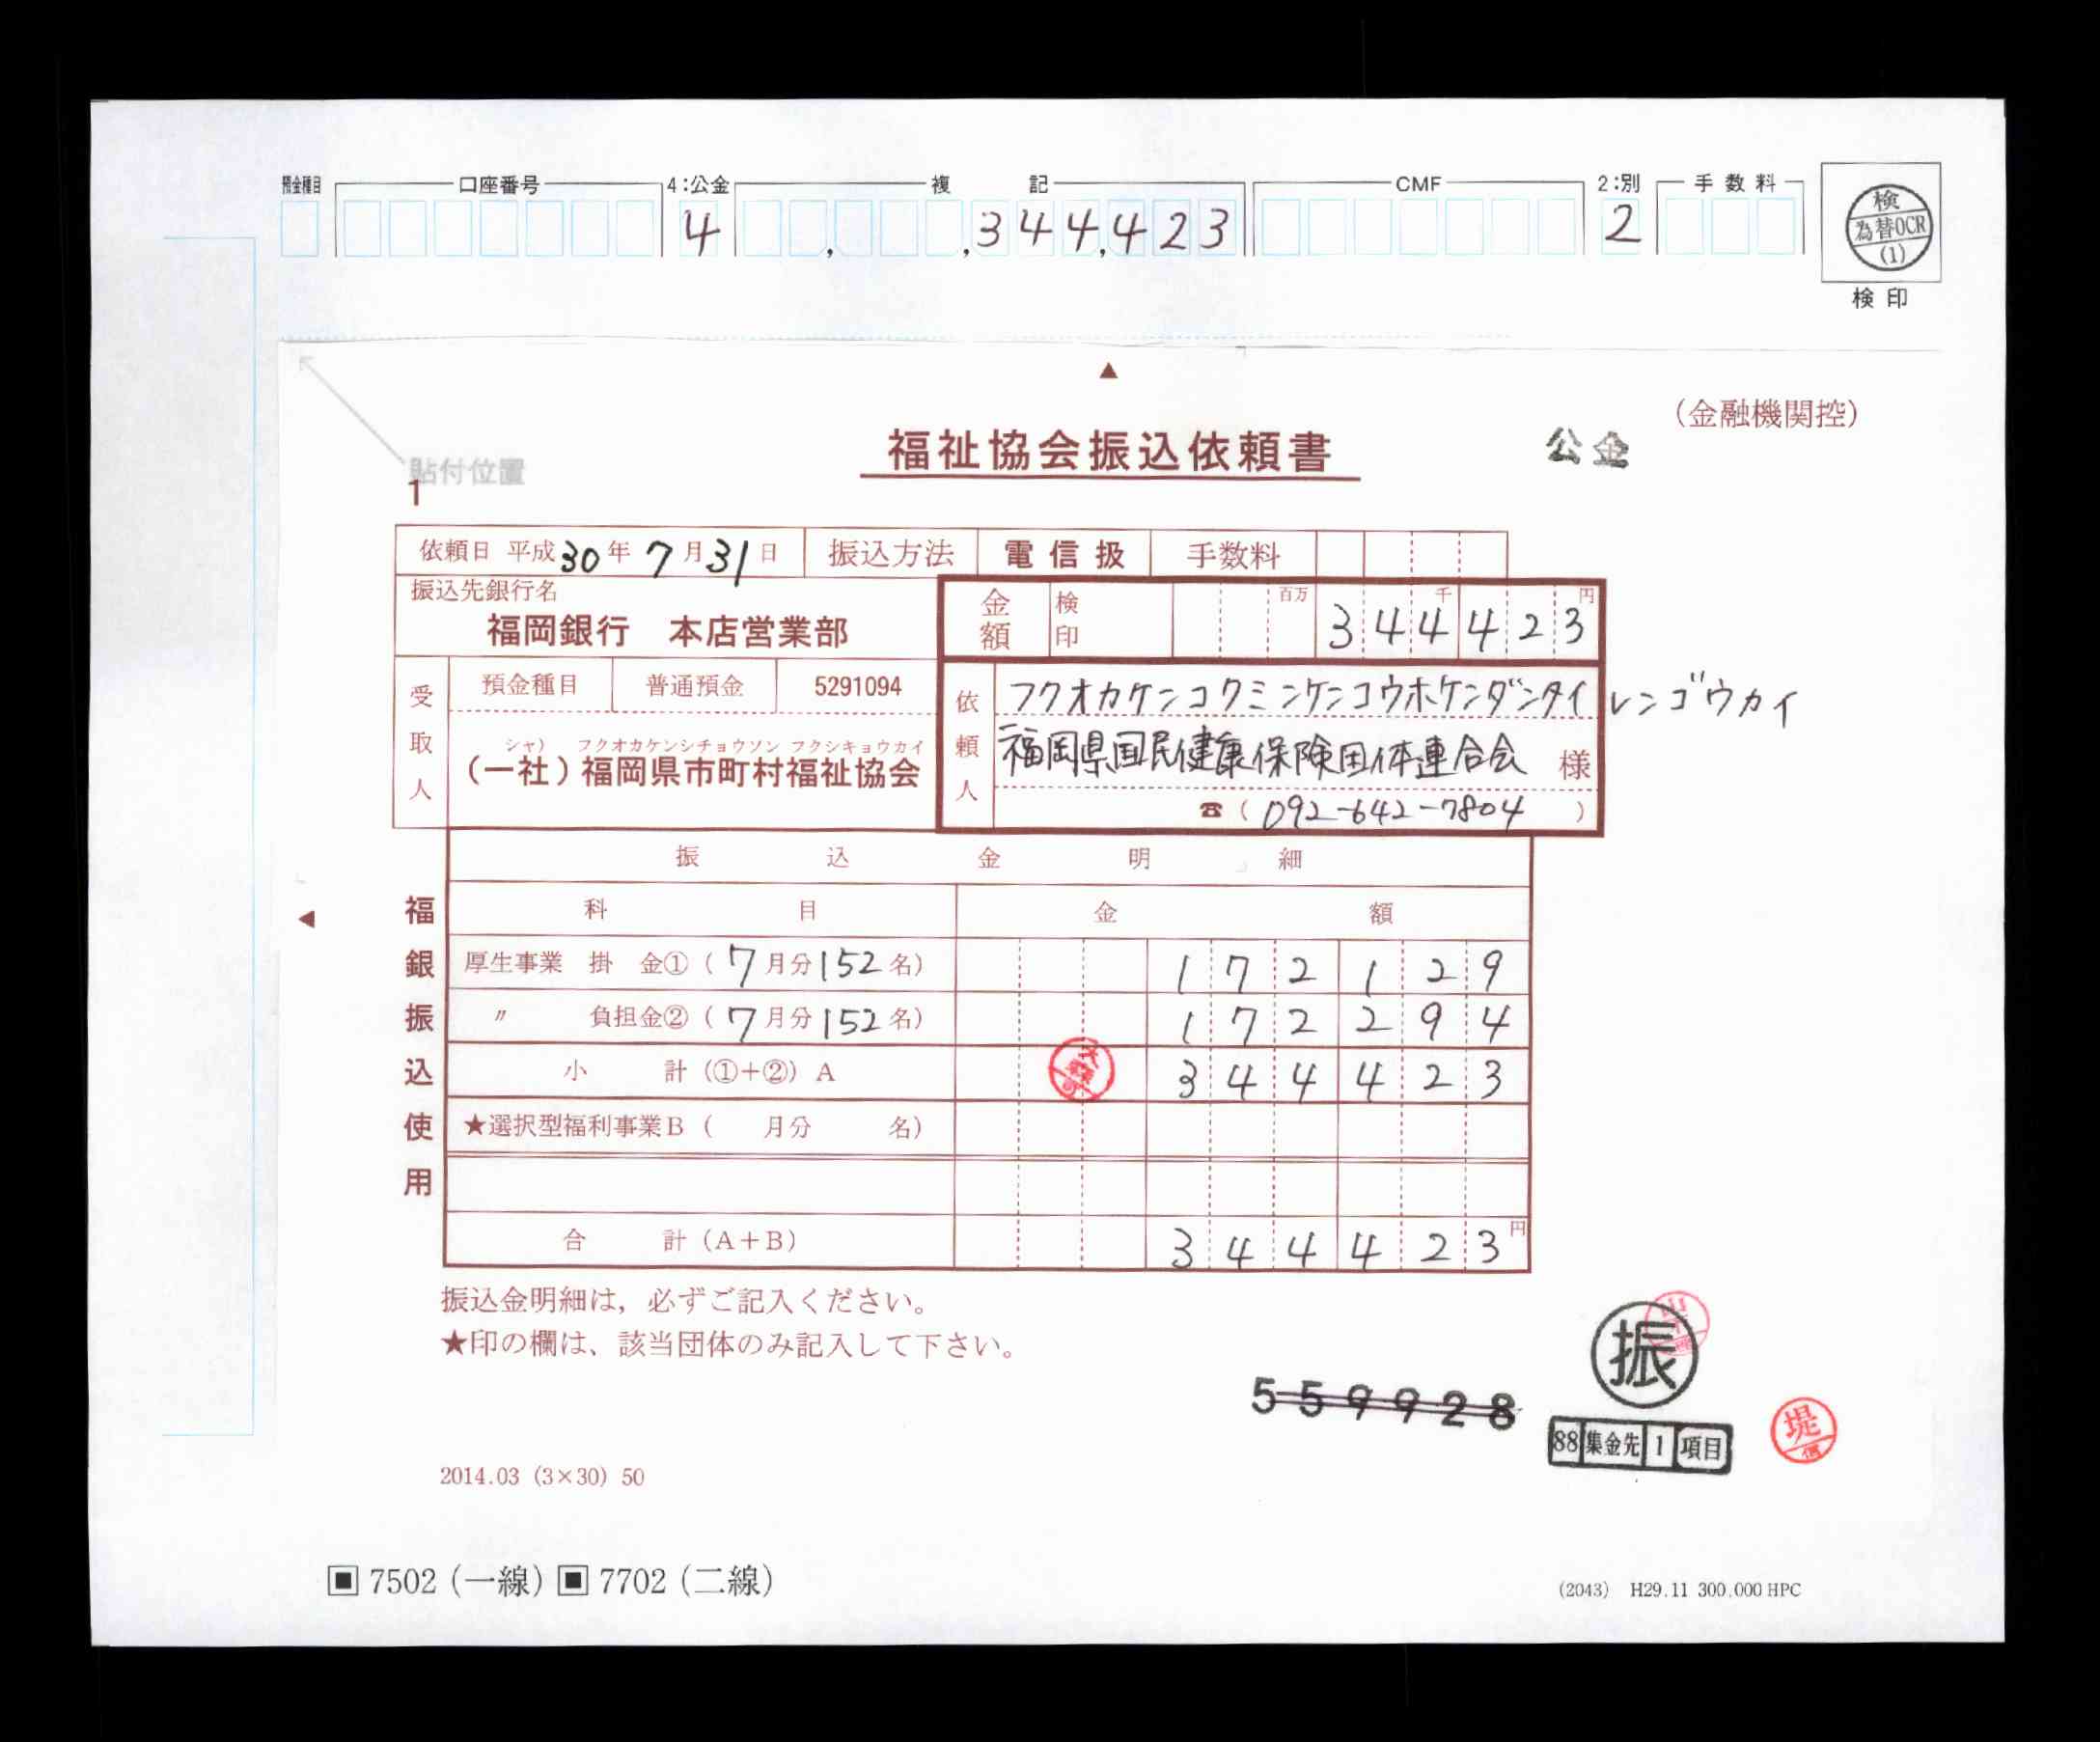 預金種目 口座番号 4:公金 複記 CMF 2:別 手数料
4 344,423 2
検
為替OCR
(1)
検印
(金融機関控)
福祉協会振込依頼書 公金
貼付位置
1
依頼日 平成30年7月31日 振込方法 電信扱 手数料
振込先銀行名
福岡銀行 本店営業部
金額 検印 百万 千 円
344423
受取人 預金種目 普通預金 5291094
シャ) フクオカケンシチョウソン フクシキョウカイ
(一社)福岡県市町村福祉協会
依頼人 フクオカケンコクミンケンコウホケンダンタイレンゴウカイ
福岡県国民健康保険団体連合会 様
☎(092-642-7804)
福銀振込使用
振込金明細
科目 金額
厚生事業 掛金①(7月分152名) 172129
〃 負担金②(7月分152名) 172294
小計(①+②)A 344423
★選択型福利事業B( 月分 名)
合計(A+B) 344423円
振込金明細は,必ずご記入ください。
★印の欄は、該当団体のみ記入して下さい。
振
559928
88 集金先 1 項目
堤
2014.03 (3×30) 50
▣7502(一線)▣7702(二線)
(2043) H29.11 300.000 HPC